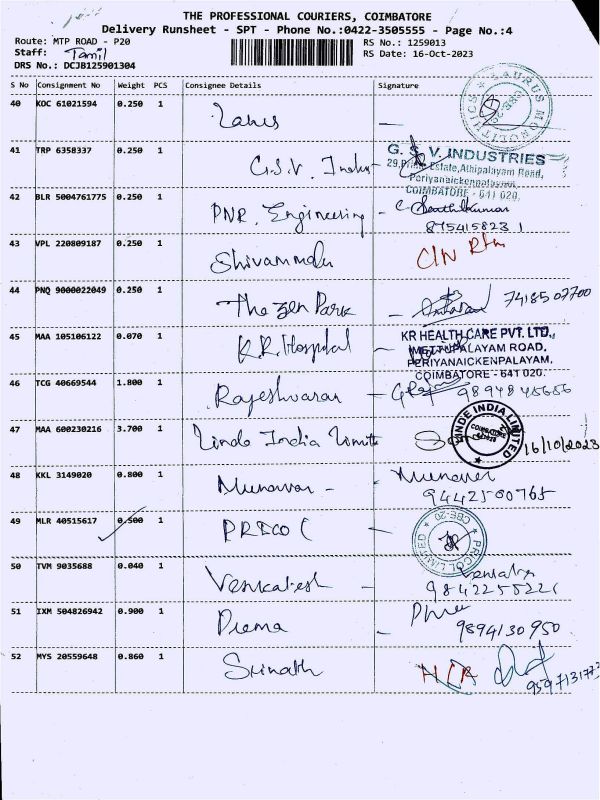 THE PROFESSIONAL COURIERS, COIMBATORE
Delivery Runsheet - SPT - Phone No.:0422-3505555 - Page No.:4
Route: MTP ROAD - P20
RS No.: 1259013
Staff: Tamil
RS Date: 16-Oct-2023
DRS No.: DCJB125901304
S No Consignment No Weight PCS Consignee Details Signature
40 KOC 61021594 0.250 1
TAURUS MONOLITHICS CBE-20
41 TRP 6358337 0.250 1 G.S.V. Indus -
G. S. V. INDUSTRIES
Estate, Athipalayam Road,
Periyanaickenpalayam,
COIMBATORE - 641 020.
42 BLR 5004761775 0.250 1 PNR. Engineering - C. Senthilkumar
875415823 1
43 VPL 220809187 0.250 1 Shivammalu C/N Rtn
44 PNQ 9000022049 0.250 1 The Zen Park - 74185 07700
45 MAA 105106122 0.070 1 K.R. Hospital -
KR HEALTH CARE PVT. LTD.,
METTUPALAYAM ROAD,
PERIYANAICKENPALAYAM,
COIMBATORE - 641 020.
46 TCG 40669544 1.800 1 Rajeshwaran - 98948 45656
47 MAA 600230216 3.700 1 Linde India Limite
LINDE INDIA LIMITED COIMBATORE
16/10/2023
48 KKL 3149020 0.800 1 Munavar - Munaver
94425 00765
49 MLR 40515617 0.500 1 PRICOL -
PRICOL LIMITED CBE-20
50 TVM 9035688 0.040 1 Venkatesh -
9842255221
51 IXM 504826942 0.900 1 Prema -
9894130950
52 MYS 20559648 0.860 1 Srinath
9597131773